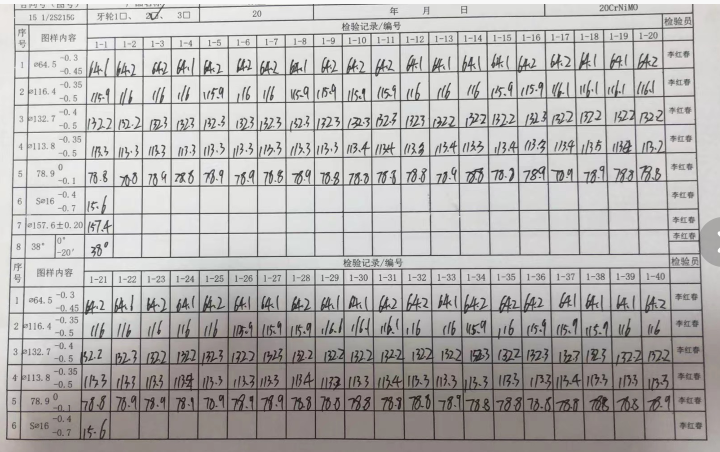 15 1/2S215G 牙轮1□、2☑、3□ 20 年 月 日 20CrNiMO
序号 图样内容 检验记录/编号 检验员
1-1 1-2 1-3 1-4 1-5 1-6 1-7 1-8 1-9 1-10 1-11 1-12 1-13 1-14 1-15 1-16 1-17 1-18 1-19 1-20
1 ø64.5 -0.3 -0.45 64.1 64.2 64.2 64.1 64.2 64.2 64.2 64.1 64.2 64.2 64.2 64.1 64.1 64.2 64.1 64.2 64.2 64.1 64.1 64.2 李红春
2 ø116.4 -0.35 -0.5 115.9 116 116 116 115.9 116 116 115.9 115.9 115.9 115.9 116 116 116 115.9 115.9 116.1 116.1 116.1 116.1 李红春
3 ø132.7 -0.4 -0.5 132.2 132.2 132.3 132.3 132.3 132.3 132.3 132.3 132.3 132.3 132.3 132.3 132.2 132.2 132.2 132.3 132.2 132.2 132.2 132.2 李红春
4 ø113.8 -0.35 -0.5 113.3 113.3 113.3 113.3 113.3 113.3 113.3 113.3 113.3 113.4 113.4 113.3 113.4 113.3 113.4 113.3 113.4 113.5 113.2 李红春
5 78.9 0 -0.1 78.8 78.8 78.9 78.8 78.9 78.9 78.8 78.9 78.8 78.8 78.8 78.8 78.9 78.8 78.9 78.9 78.9 78.8 78.8 李红春
6 Sø16 -0.4 -0.7 15.6 李红春
7 ø157.6±0.20 157.4 李红春
8 38° 0° -20′ 38° 李红春
序号 图样内容 检验记录/编号 检验员
1-21 1-22 1-23 1-24 1-25 1-26 1-27 1-28 1-29 1-30 1-31 1-32 1-33 1-34 1-35 1-36 1-37 1-38 1-39 1-40
1 ø64.5 -0.3 -0.45 64.2 64.1 64.2 64.1 64.2 64.1 64.1 64.2 64.1 64.1 64.2 64.2 64.1 64.2 64.2 64.2 64.1 64.1 64.1 64.2 李红春
2 ø116.4 -0.35 -0.5 116 116 116 116 116 115.9 115.9 115.9 116.1 116.1 116.1 116 116 115.9 116 115.9 115.9 115.9 116 116 李红春
3 ø132.7 -0.4 -0.5 132.2 132.3 132.2 132.2 132.3 132.2 132.3 132.2 132.2 132.2 132.2 132.2 132.2 132.3 132.2 132.3 132.3 132.3 132.2 132.2 李红春
4 ø113.8 -0.35 -0.5 113.3 113.3 113.3 113.4 113.3 113.3 113.3 113.4 113.3 113.3 113.4 113.3 113.3 113.3 113.3 113.3 113.4 113.3 113.3 113.3 李红春
5 78.9 0 -0.1 78.8 78.9 78.9 78.9 78.9 78.9 78.9 78.8 78.8 78.8 78.8 78.8 78.9 78.8 78.8 78.8 78.8 78.8 78.8 78.9 李红春
6 Sø16 -0.4 -0.7 15.6 李红春